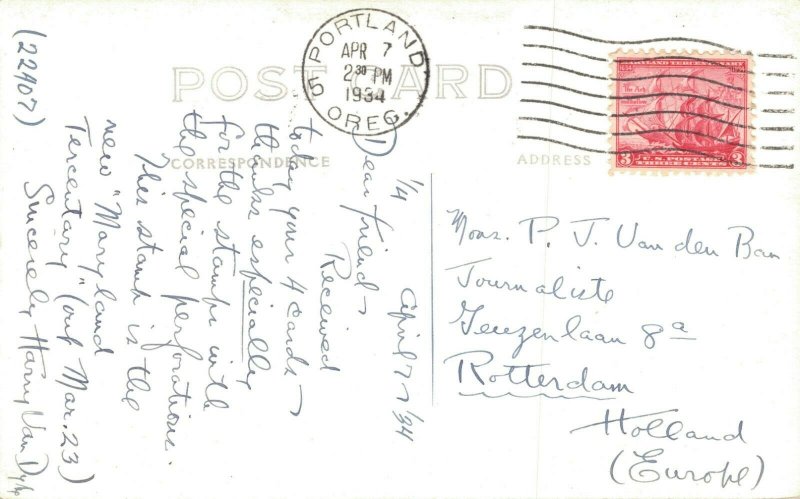 POST CARD
CORRESPONDENCE
ADDRESS
PORTLAND
APR 7
2 30 PM
1934
5 OREG.
MARYLAND TERCENTENARY
The Ark
3 U.S. POSTAGE 3
THREE CENTS
1/4 April 7, '34
Dear friend –
Received
today your 4 cards –
thanks especially
for the stamps with
the special perforations.
This stamp is the
new "Maryland
Tercentary" (out Mar. 23)
Sincerely Harry Van Dyke
(22407)
Mons. P. J. Van den Ban
Journaliste
Geuzenlaan 8a
Rotterdam
Holland
(Europe)